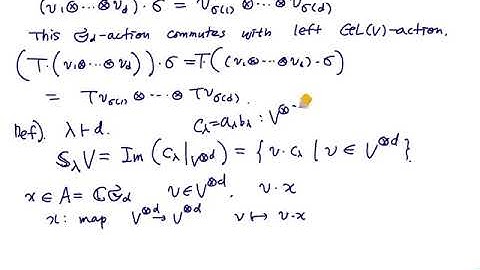 (v₁⊗···⊗v_d)·σ = v_σ(1)⊗···⊗v_σ(d)
This 𝔖_d-action commutes with left GL(V)-action.
(T·(v₁⊗···⊗v_d))·σ = T((v₁⊗···⊗v_d)·σ)
= Tv_σ(1)⊗···⊗Tv_σ(d).
Def). λ⊢d. c_λ=a_λb_λ : V^⊗
𝕊_λV = Im(c_λ|_V^⊗d) = {v·c_λ | v ∈ V^⊗d}.
x ∈ A = ℂ𝔖_d v∈V^⊗d. v·x
x: map V^⊗d→V^⊗d v↦v·x